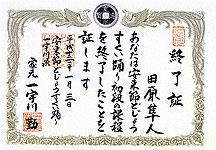 終了証
田原隼人
あなたは安来節どじょう
すくい踊り初段の課程
を終了したことを
証します
平成十二年一月三日
安来節どじょうすくい踊り
一宇川流
家元 一宇川 勤